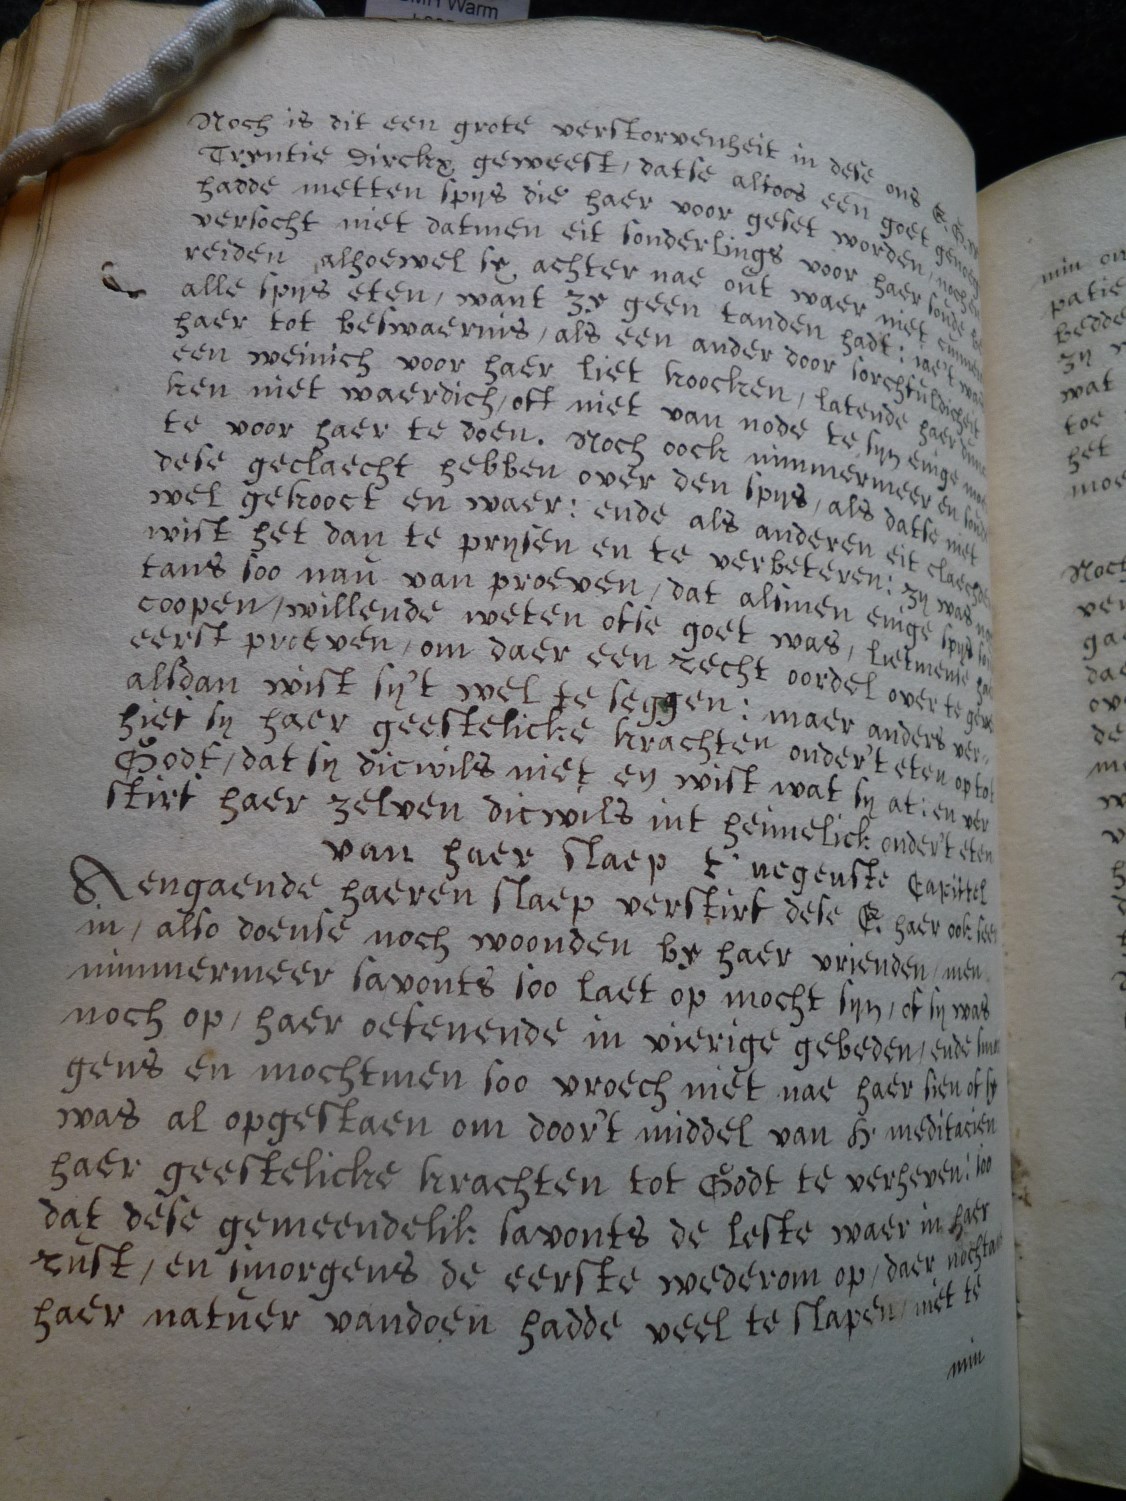 Noch is dit een grote verstorvenheit in dese ons E. E.
Tryntie Dirckx geweest, datse altoos een goet genoegen
hadde metten spijs die haer voor geset worden, noch en
versocht niet datmen eit sonderlings voor haer soude be
reiden, alhoewel sy achter nae out waer niet
alle spijs eten, want zy geen tanden hadt: iae't was
haer tot beswaernis, als een ander door sorchfuldicheit
een weinich voor haer liet koocken, latende haer
ken niet waerdich, oft niet van node te syn enige
te voor haer te doen. Noch oock nimmermeer en soude
dese geclaecht hebben over den spijs, als datse niet
wel gekooct en waer: ende als anderen eit claechden
wist het dan te prijsen en te verbeteren: zy was
tans soo nau van proeven, dat alsmen enige spijs sou
coopen, willende weten ofse goet was, lietmense haer
eerst proeven, om daer een recht oordel over te geven
alsdan wist sy't wel te seggen: maer anders ver-
hief sy haer geestelicke krachten onder't eten op tot
Godt, dat sy dicwils niet en wist wat sy at: en ver
stirf haer zelven dicwils int heimelick onder't eten
van haer slaep t' negenste Capittel
Aengaende haeren slaep verstirf dese E. haer ook seer
in, also doense noch woonden by haer vrienden, men
nimmermeer savonts soo laet op mocht syn, of sy was
noch op, haer oefenende in vierige gebeden, ende smor
gens en mochtmen soo vroech niet nae haer sien of sy
was al opgestaen om door't middel van H. meditacien
haer geestelicke krachten tot Godt te verheven: soo
dat dese gemeendelik savonts de leste waer in haer
rust, en smorgens de eerste wederom op, daer nochtans
haer natuer vandoen hadde veel te slapen, niet te
min
min
patie
bedde
zy
wat
toe
het
moe
Noch
ver
gae
dae
ove
de